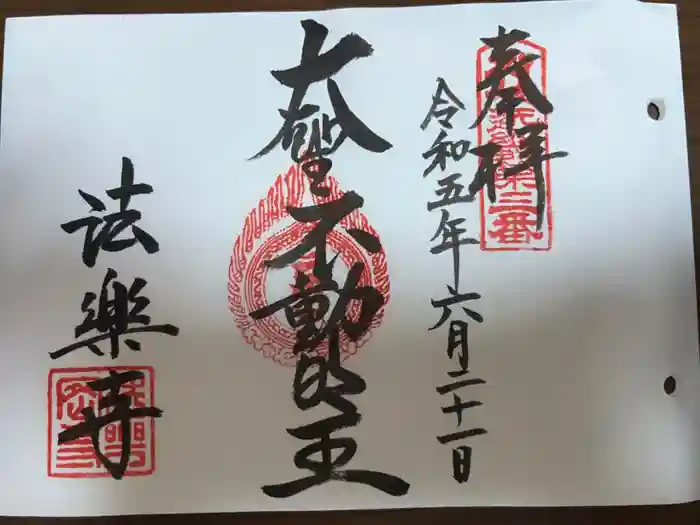 奉拝
令和五年六月二十一日
大聖不動明王
法樂寺